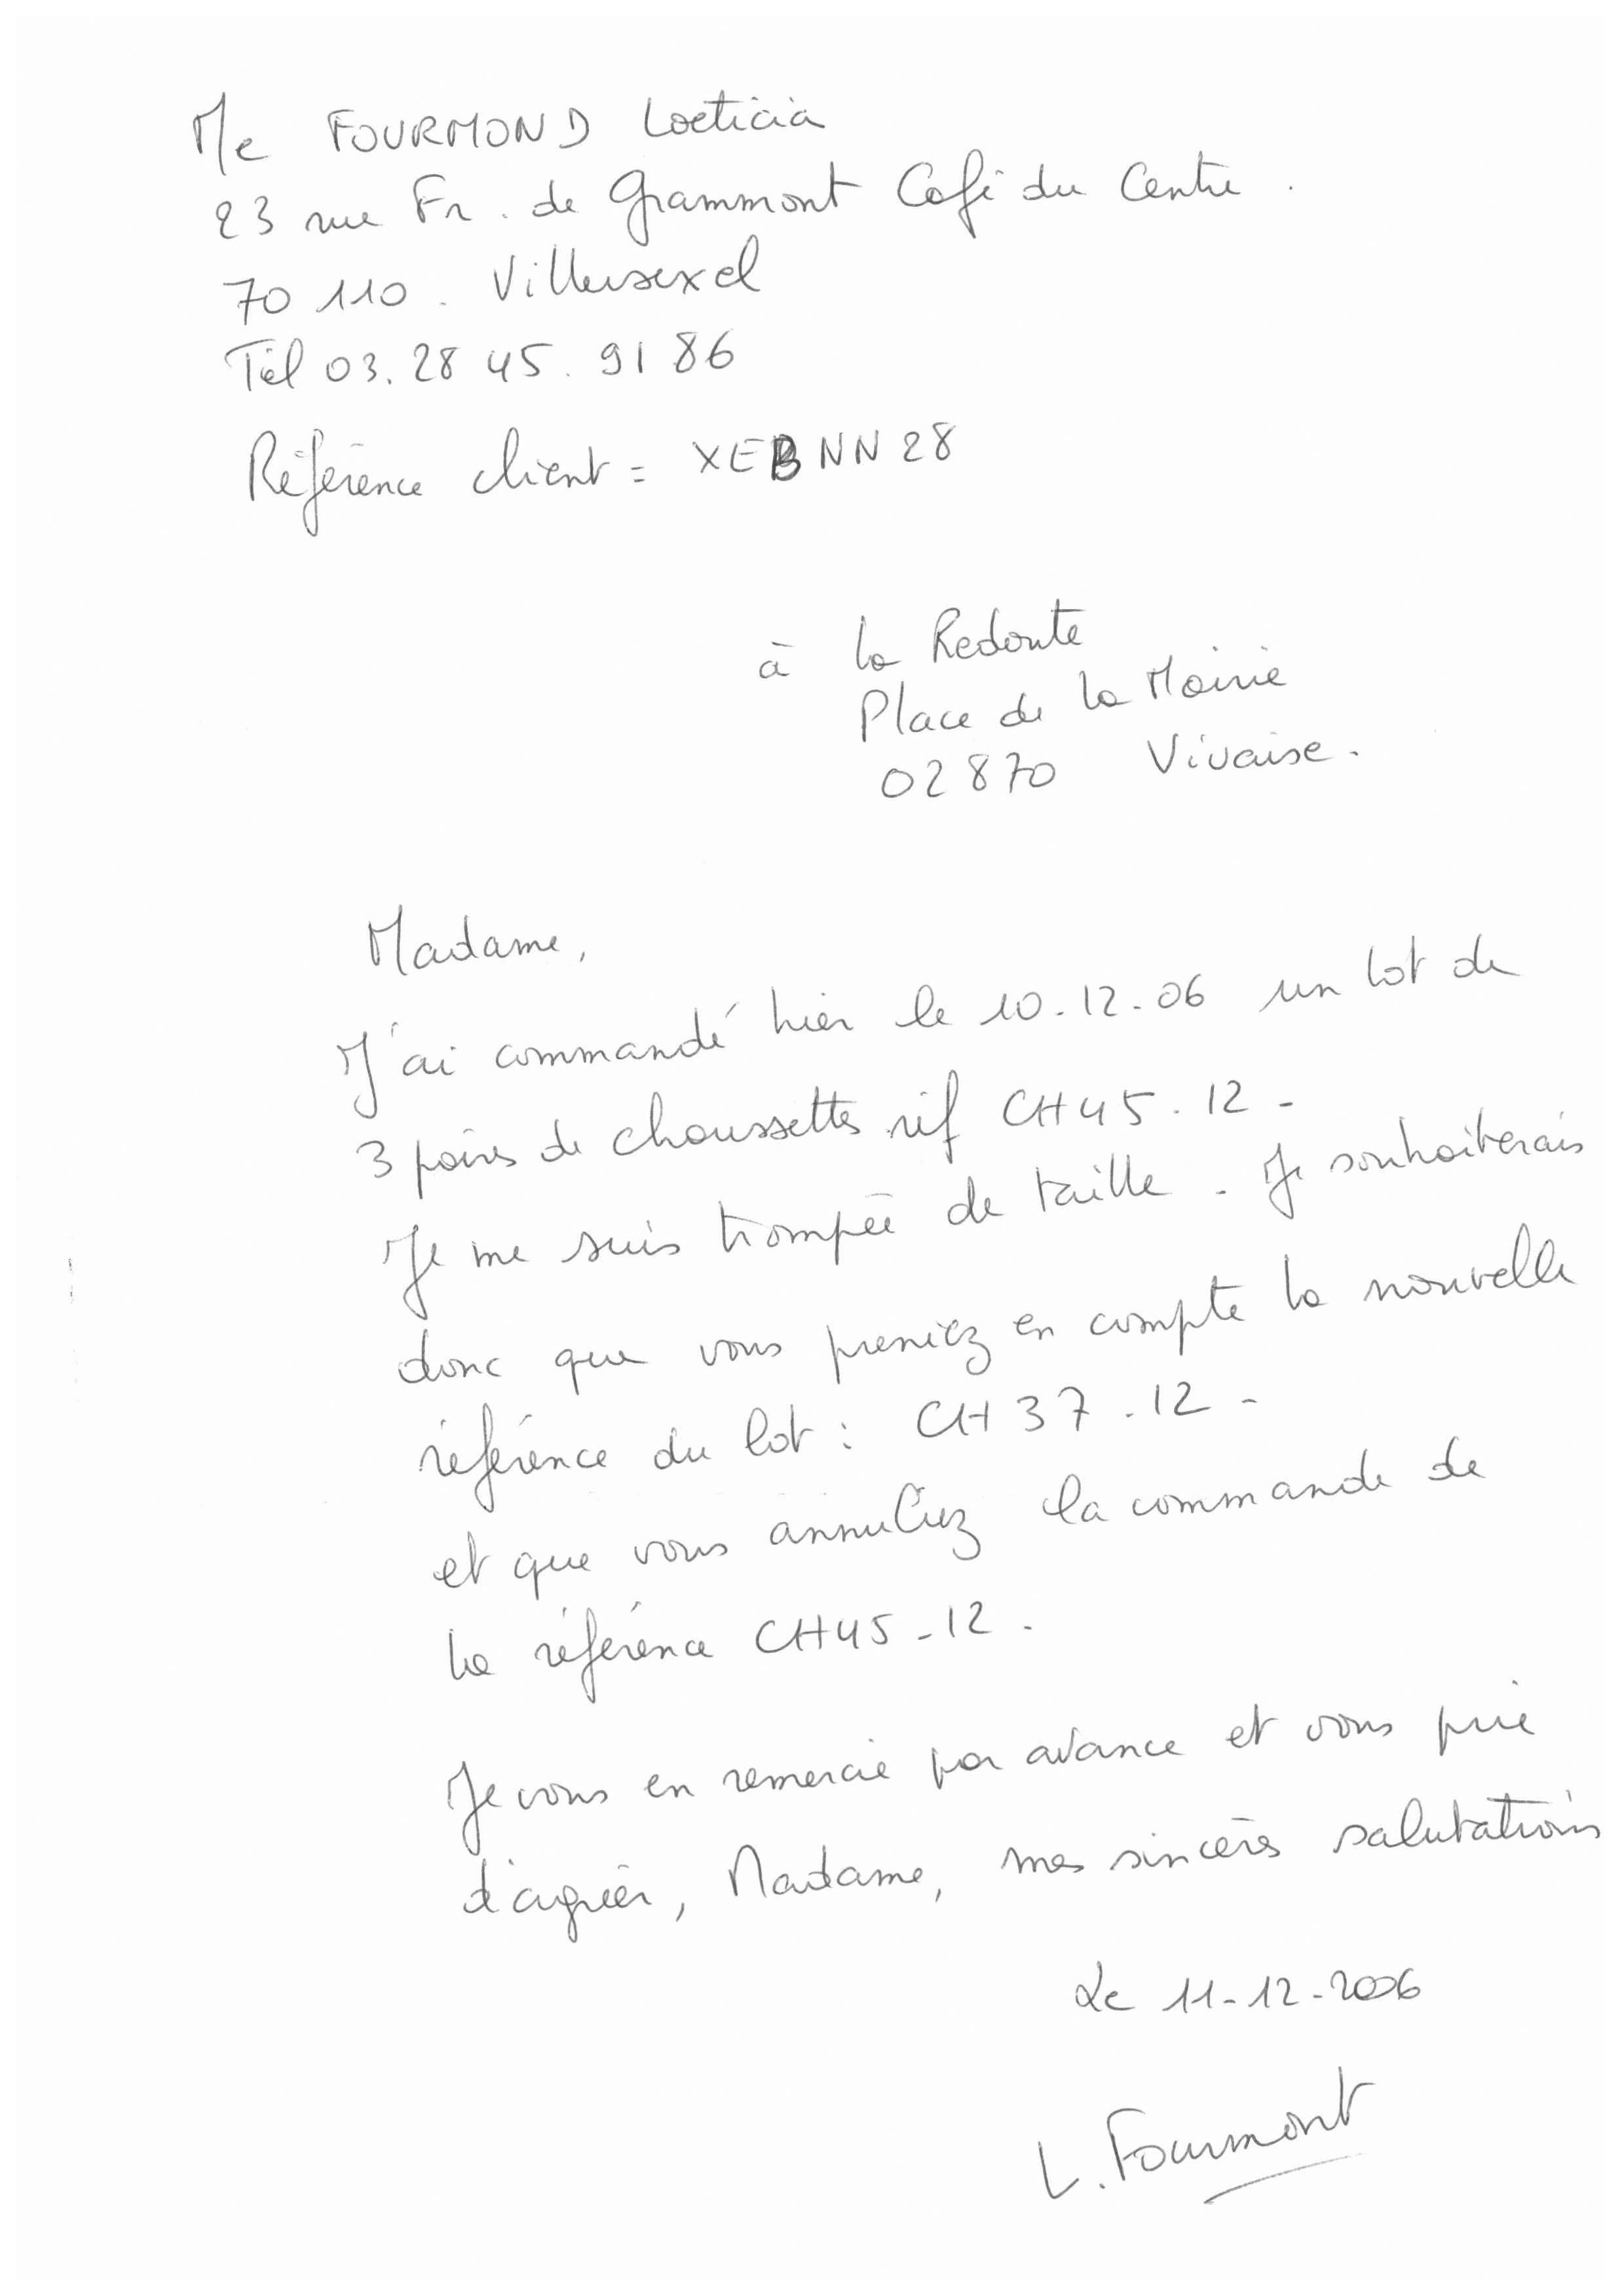 Me FOURMOND Loeticia
23 rue Fr. de Grammont Café du Centre.
70 110. Villersexel
Tél 03. 28 45. 91 86
Référence client = XEBNN28
à la Redoute
Place de la Mairie
02870 Vivaise.
Madame,
J'ai commandé hier le 10-12-06 un lot de
3 paires de choussettes réf CH45.12-
Je me suis trompée de taille. Je souhaiterais
donc que vous preniez en compte la nouvelle
référence du lot : CH37.12-
et que vous annuliez la commande de
la référence CH45-12.
Je vous en remercie par avance et vous prie
d'agréer, Madame, mes sincères salutations
Le 11-12-2006
L. Fourmont